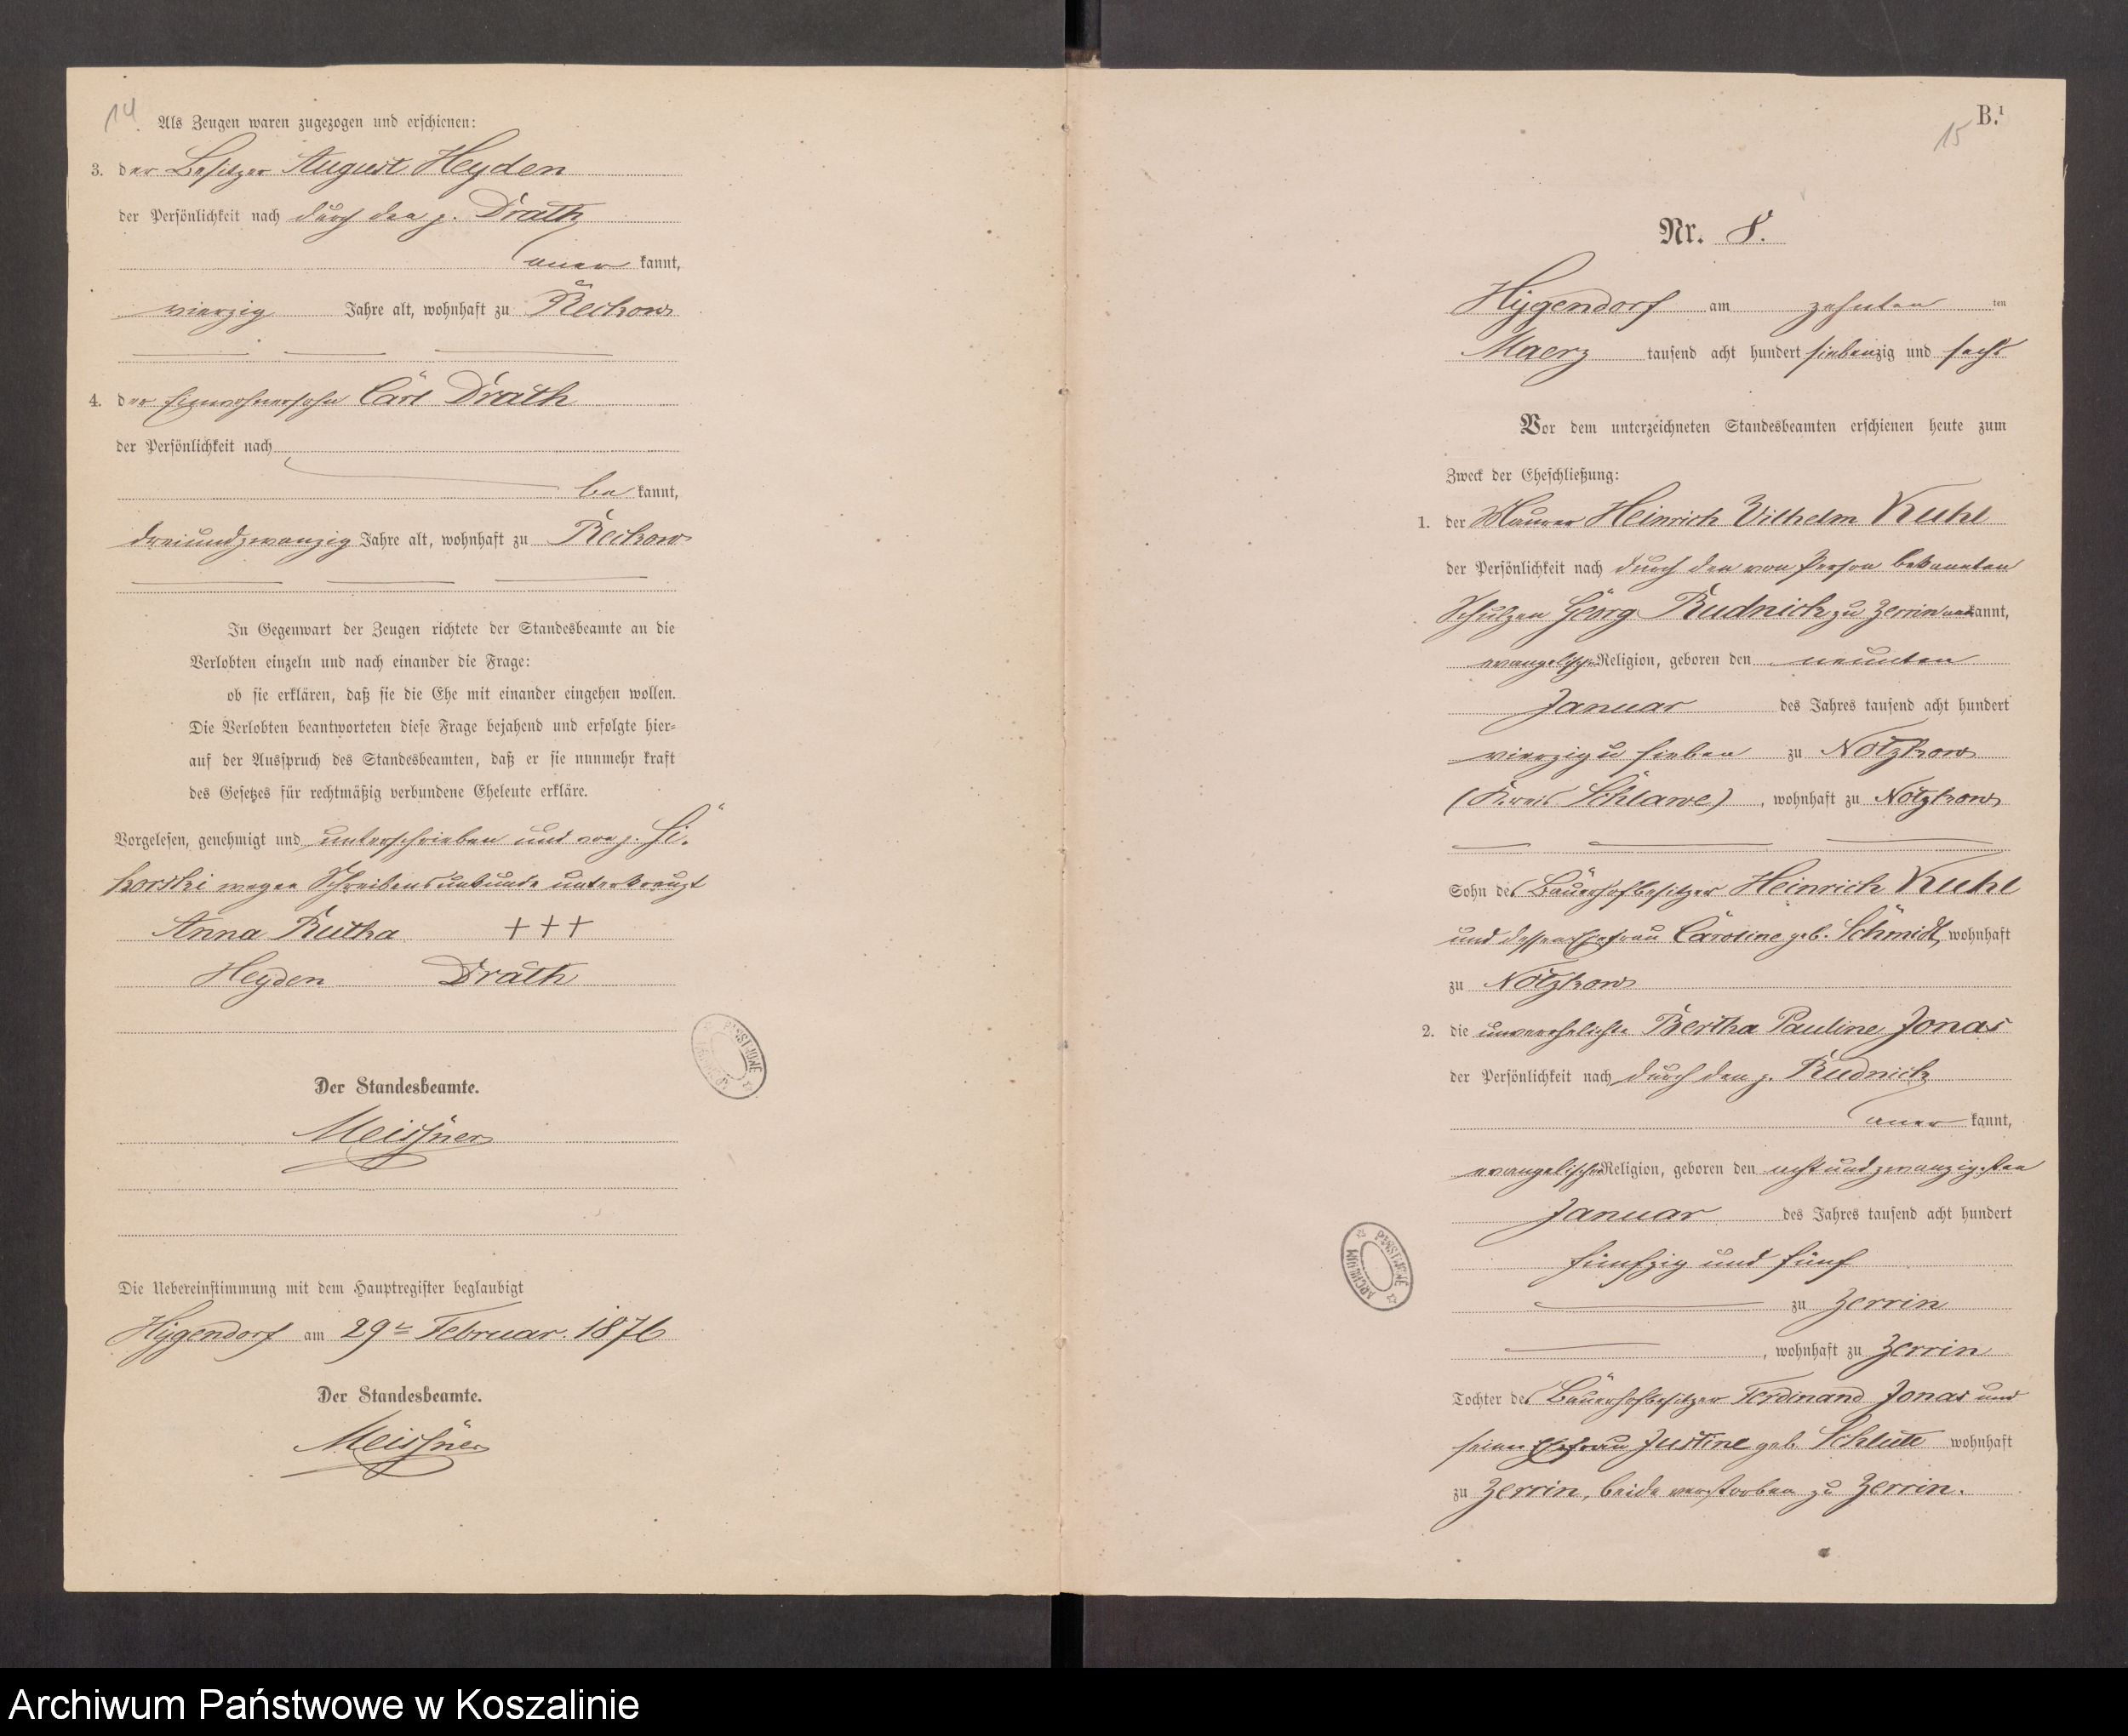 14
Als Zeugen waren zugezogen und erschienen:
3. der Besitzer August Heyden
der Persönlichkeit nach durch den p. Drath
aner kannt,
vierzig Jahre alt, wohnhaft zu Reckow
4. der Eigenthümersohn Carl Drath
der Persönlichkeit nach
be kannt,
dreiundzwanzig Jahre alt, wohnhaft zu Reckow
In Gegenwart der Zeugen richtete der Standesbeamte an die
Verlobten einzeln und nach einander die Frage:
ob sie erklären, daß sie die Ehe mit einander eingehen wollen.
Die Verlobten beantworteten diese Frage bejahend und erfolgte hier-
auf der Ausspruch des Standesbeamten, daß er sie nunmehr kraft
des Gesetzes für rechtmäßig verbundene Eheleute erkläre.
Vorgelesen, genehmigt und unterschrieben und von p. Si-
korski wegen Schreibensunkunde unterkreuzt
Anna Rutha +++
Heyden Drath
Der Standesbeamte.
Meissner
Die Uebereinstimmung mit dem Hauptregister beglaubigt
Hygendorf am 29ten Februar 1876
Der Standesbeamte.
Meissner
B.1
15
Nr. 8.
Hygendorf am zehnten ten
Maerz tausend acht hundert siebenzig und sechs
Vor dem unterzeichneten Standesbeamten erschienen heute zum
Zweck der Eheschließung:
1. der Maurer Heinrich Wilhelm Kuhl
der Persönlichkeit nach durch den von Person bekannten
Schulzen Georg Rudnick zu Zerrin anerkannt,
evangelischer Religion, geboren den neunten
Januar des Jahres tausend acht hundert
vierzig u sieben zu Notzkow
(Kreis Schlawe), wohnhaft zu Notzkow
Sohn des Bauerhofbesitzer Heinrich Kuhl
und dessen Ehefrau Caroline geb. Schmidt, wohnhaft
zu Notzkow
2. die unverehelichte Bertha Pauline Jonas
der Persönlichkeit nach durch den p. Rudnick
aner kannt,
evangelischer Religion, geboren den achtundzwanzigsten
Januar des Jahres tausend acht hundert
fünfzig und fünf
zu Zerrin
, wohnhaft zu Zerrin
Tochter des Bauerhofbesitzer Ferdinand Jonas und
seiner Ehefrau Justine geb. Schlutt wohnhaft
zu Zerrin, beide verstorben zu Zerrin.
ARCHIWUM PAŃSTWOWE
Archiwum Państwowe w Koszalinie